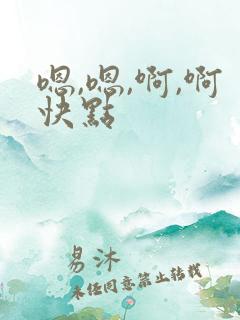 嗯,嗯,啊,啊
快點
易沐
未经同意禁止转载